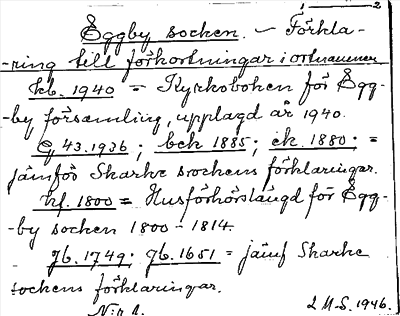 1 2
Eggby socken. - Förkla-
-ring till förkortningar i ortnamnen
kb. 1940 = Kyrkoboken för Egg-
-by församling, upplagd år 1940.
Eg 43.1936; bek 1885; ek. 1880; =
jämför Skarke sockens förklaringar.
hf. 1800 = Husförhörslängd för Egg-
-by socken 1800 - 1814.
jb. 1749; jb. 1651 = jämf Skarke
sockens förklaringar.
L M-S. 1946.